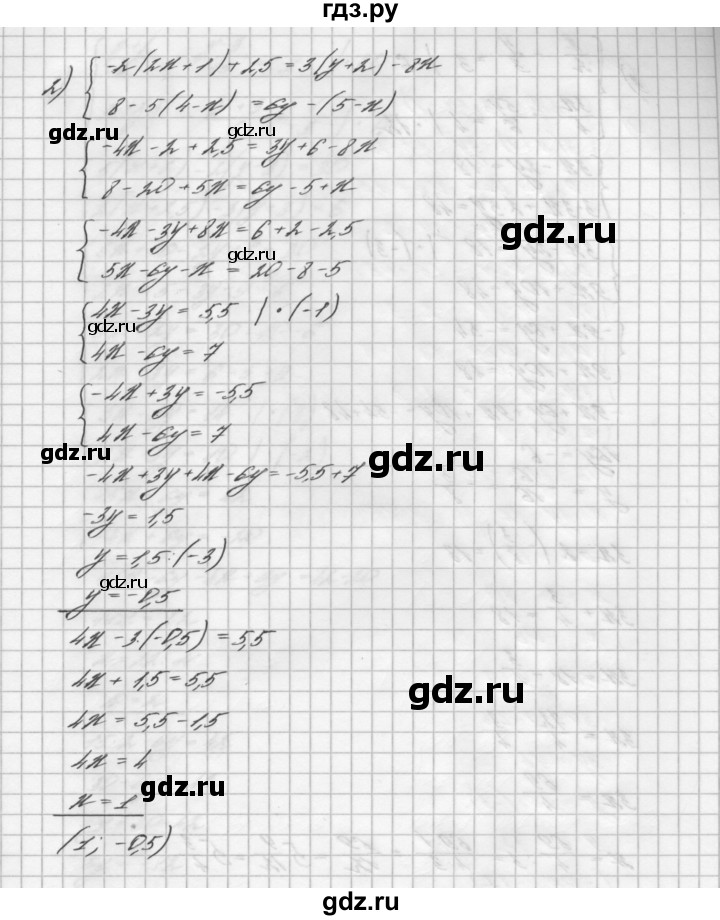 гдз.ру
2) { -2(2x+1)+2,5=3(y+2)-8x
8-5(4-x) =6y-(5-x)
gdz.ru gdz.ru
{ -4x-2+2,5=3y+6-8x
8-20+5x=6y-5+x
{ -4x-3y+8x=6+2-2,5
gdz.ru
gdz.ru
5x-6y-x=20-8-5
{ 4x-3y=5,5 | ·(-1)
gdz.ru
4x-6y=7
{ -4x+3y=-5,5
4x-6y=7
gdz.ru gdz.ru
-4x+3y+4x-6y=-5,5+7
-3y=1,5
y=1,5:(-3)
gdz.ru
y=-0,5
4x-3·(-0,5)=5,5
4x+1,5=5,5
gdz.ru
4x=5,5-1,5
4x=4
gdz.ru
x=1
(1; -0,5)
gdz.ru